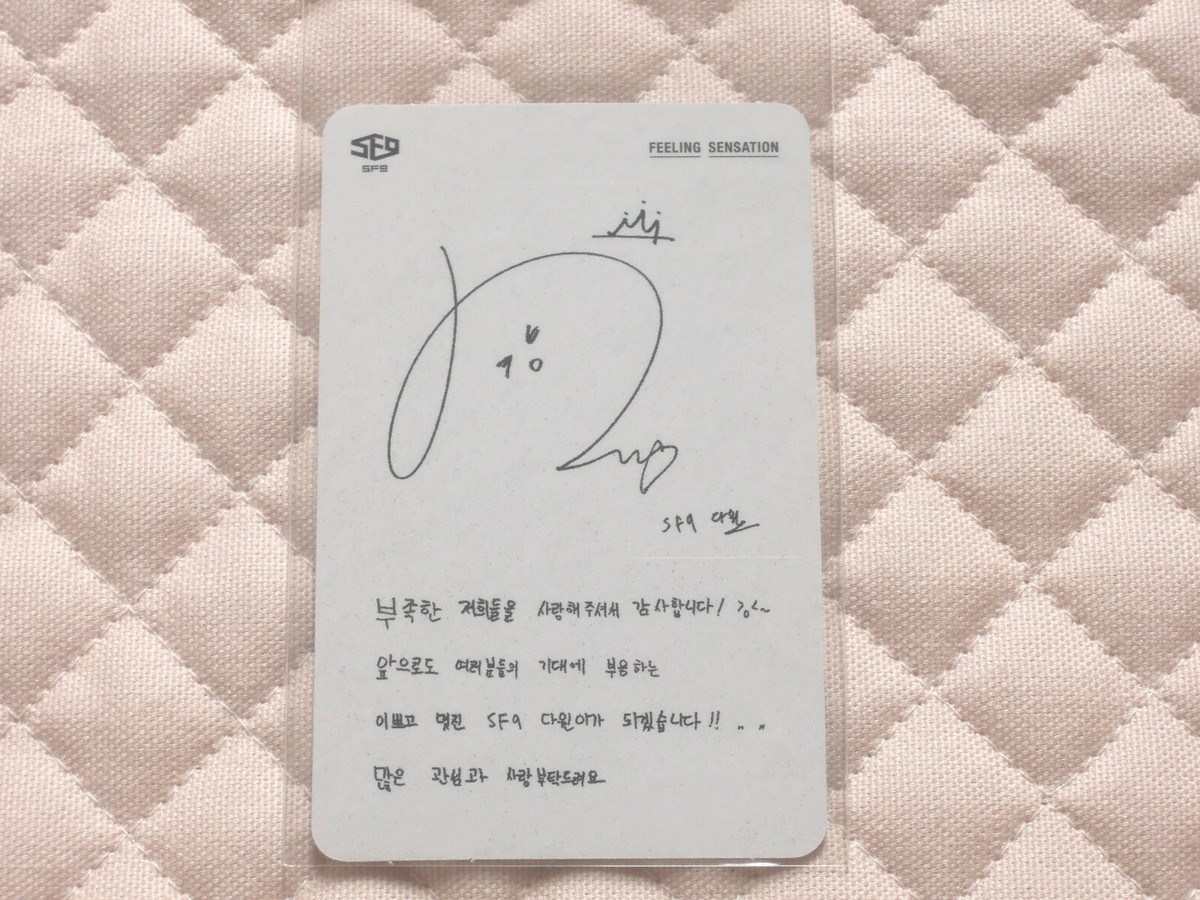 SF9
SF9
FEELING SENSATION
SF9 다원
부족한 저희들을 사랑해주셔서 감사합니다! >o<~
앞으로도 여러분들의 기대에 부응하는
이쁘고 멋진 SF9 다원이가 되겠습니다!! ..
많은 관심과 사랑부탁드려요